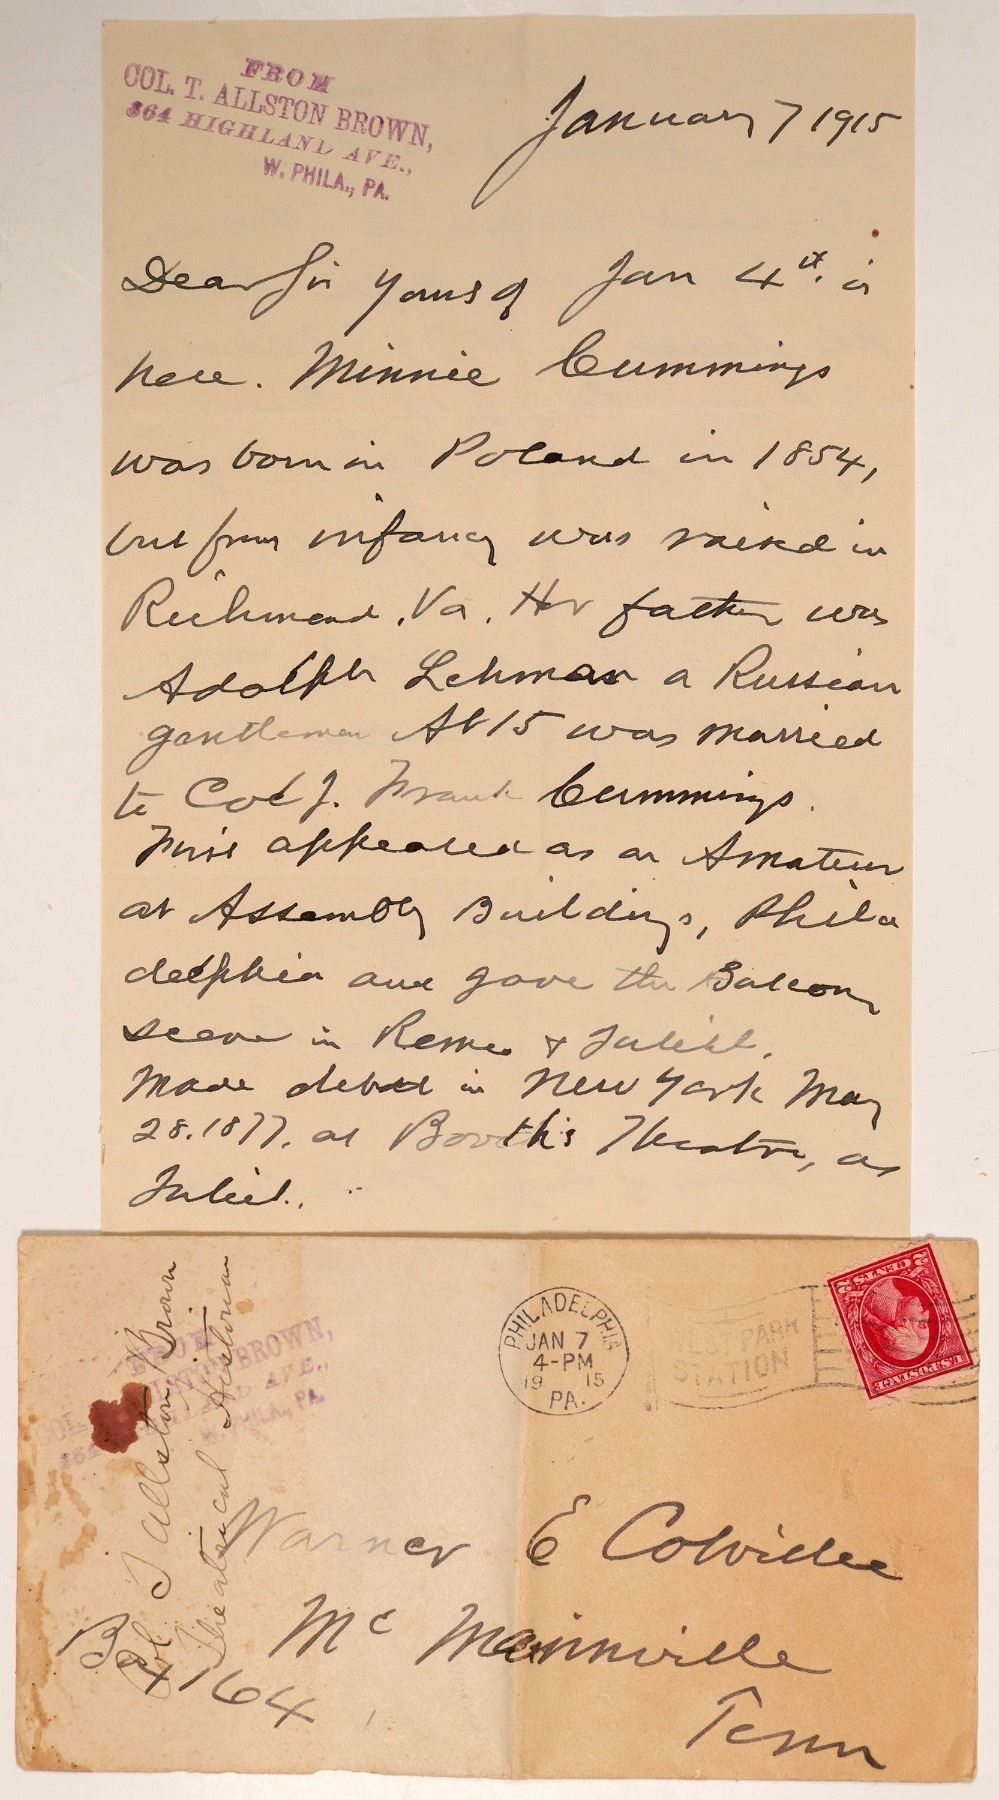 FROM
COL. T. ALLSTON BROWN,
364 HIGHLAND AVE.,
W. PHILA., PA.
January 7 1915
Dear Sir Yours of Jan 4th. is
here. Minnie Cummings
was born in Poland in 1854,
but from infancy was raised in
Richmond, Va. Her father was
Adolph Lehman a Russian
gentleman At 15 was married
to Col J. Frank Cummings.
First appeared as an Amateur
at Assembly Buildings, Phila
delphia and gave the Balcony
scene in Romeo & Juliet.
Made debut in New York May
28.1877. at Booth's Theatre, as
Juliet.
PHILADELPHIA
JAN 7
4-PM
19 15
PA.
PARK
STATION
2 CENTS 2
U.S. POSTAGE
FROM
COL. ALLSTON BROWN,
364 HIGHLAND AVE.,
W. PHILA., PA.
Col. T Allston Brown
Theatrical Historian
Warner E Colville
Mc Mainnville
Tenn
Bx 164